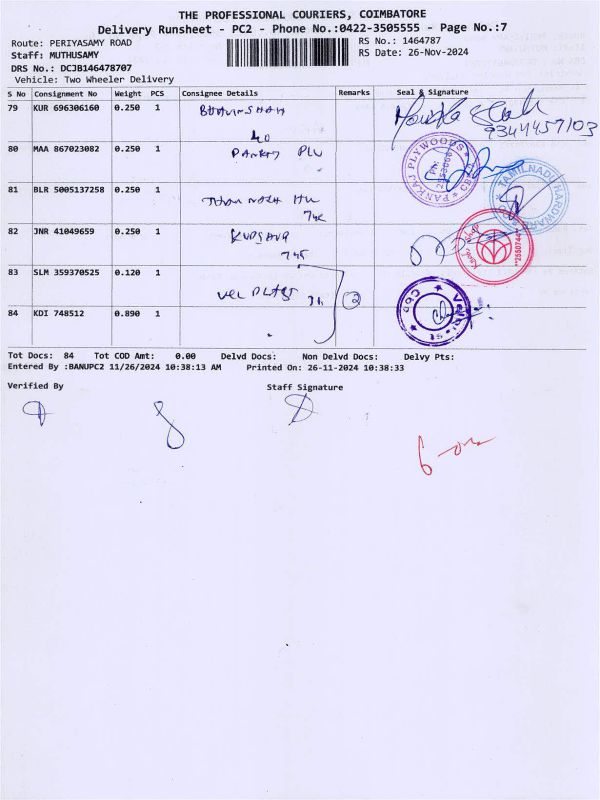 THE PROFESSIONAL COURIERS, COIMBATORE
Delivery Runsheet - PC2 - Phone No.:0422-3505555 - Page No.:7
Route: PERIYASAMY ROAD
RS No.: 1464787
Staff: MUTHUSAMY
RS Date: 26-Nov-2024
DRS No.: DCJB146478707
Vehicle: Two Wheeler Delivery
S No Consignment No Weight PCS Consignee Details Remarks Seal & Signature
79 KUR 696306160 0.250 1
9344457103
80 MAA 867023082 0.250 1
PANKAJ PLYWOODS
81 BLR 5005137258 0.250 1
TAMILNADU HARDWARE
82 JNR 41049659 0.250 1
83 SLM 359370525 0.120 1
2
84 KDI 748512 0.890 1
Tot Docs: 84 Tot COD Amt: 0.00 Delvd Docs: Non Delvd Docs: Delvy Pts:
Entered By :BANUPC2 11/26/2024 10:38:13 AM Printed On: 26-11-2024 10:38:33
Verified By Staff Signature